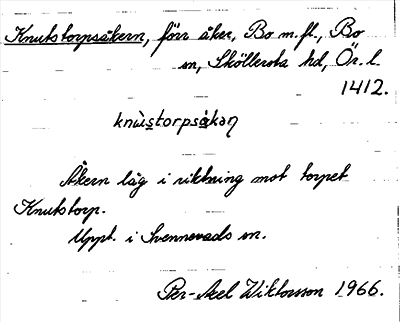 Knutstorpsåkern, förr åker, Bo m.fl., Bo
sn, Sköllersta hd, Ör. l.
1412.
knùstorpsåkəɳ
Åkern låg i riktning mot torpet
Knutstorp.
Uppt. i Svennevads sn.
Per-Axel Wiktorsson 1966.